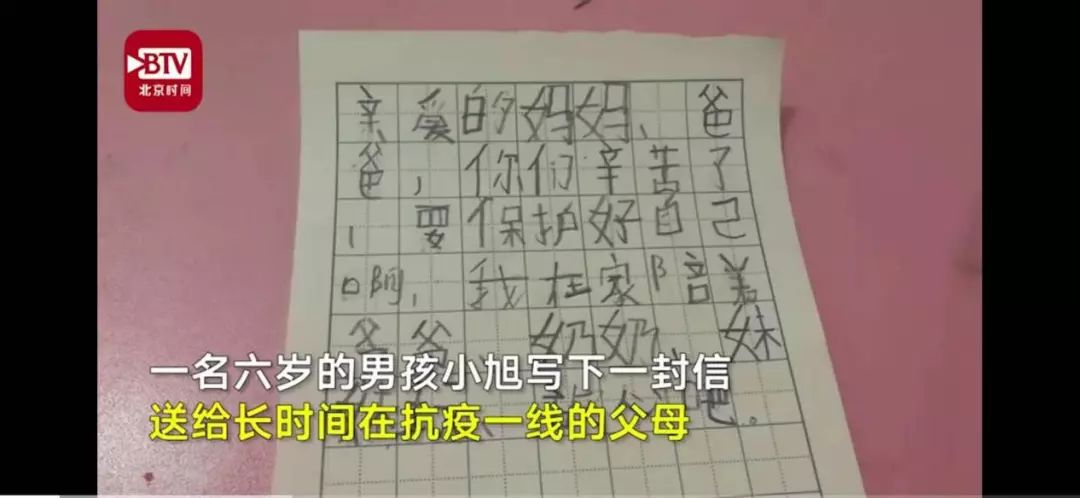 BTV
北京时间
亲爱的妈妈、爸
爸，你们辛苦了
，要保护好自己
啊，我在家陪着
爷爷、奶奶、妹
吧。
一名六岁的男孩小旭写下一封信
送给长时间在抗疫一线的父母